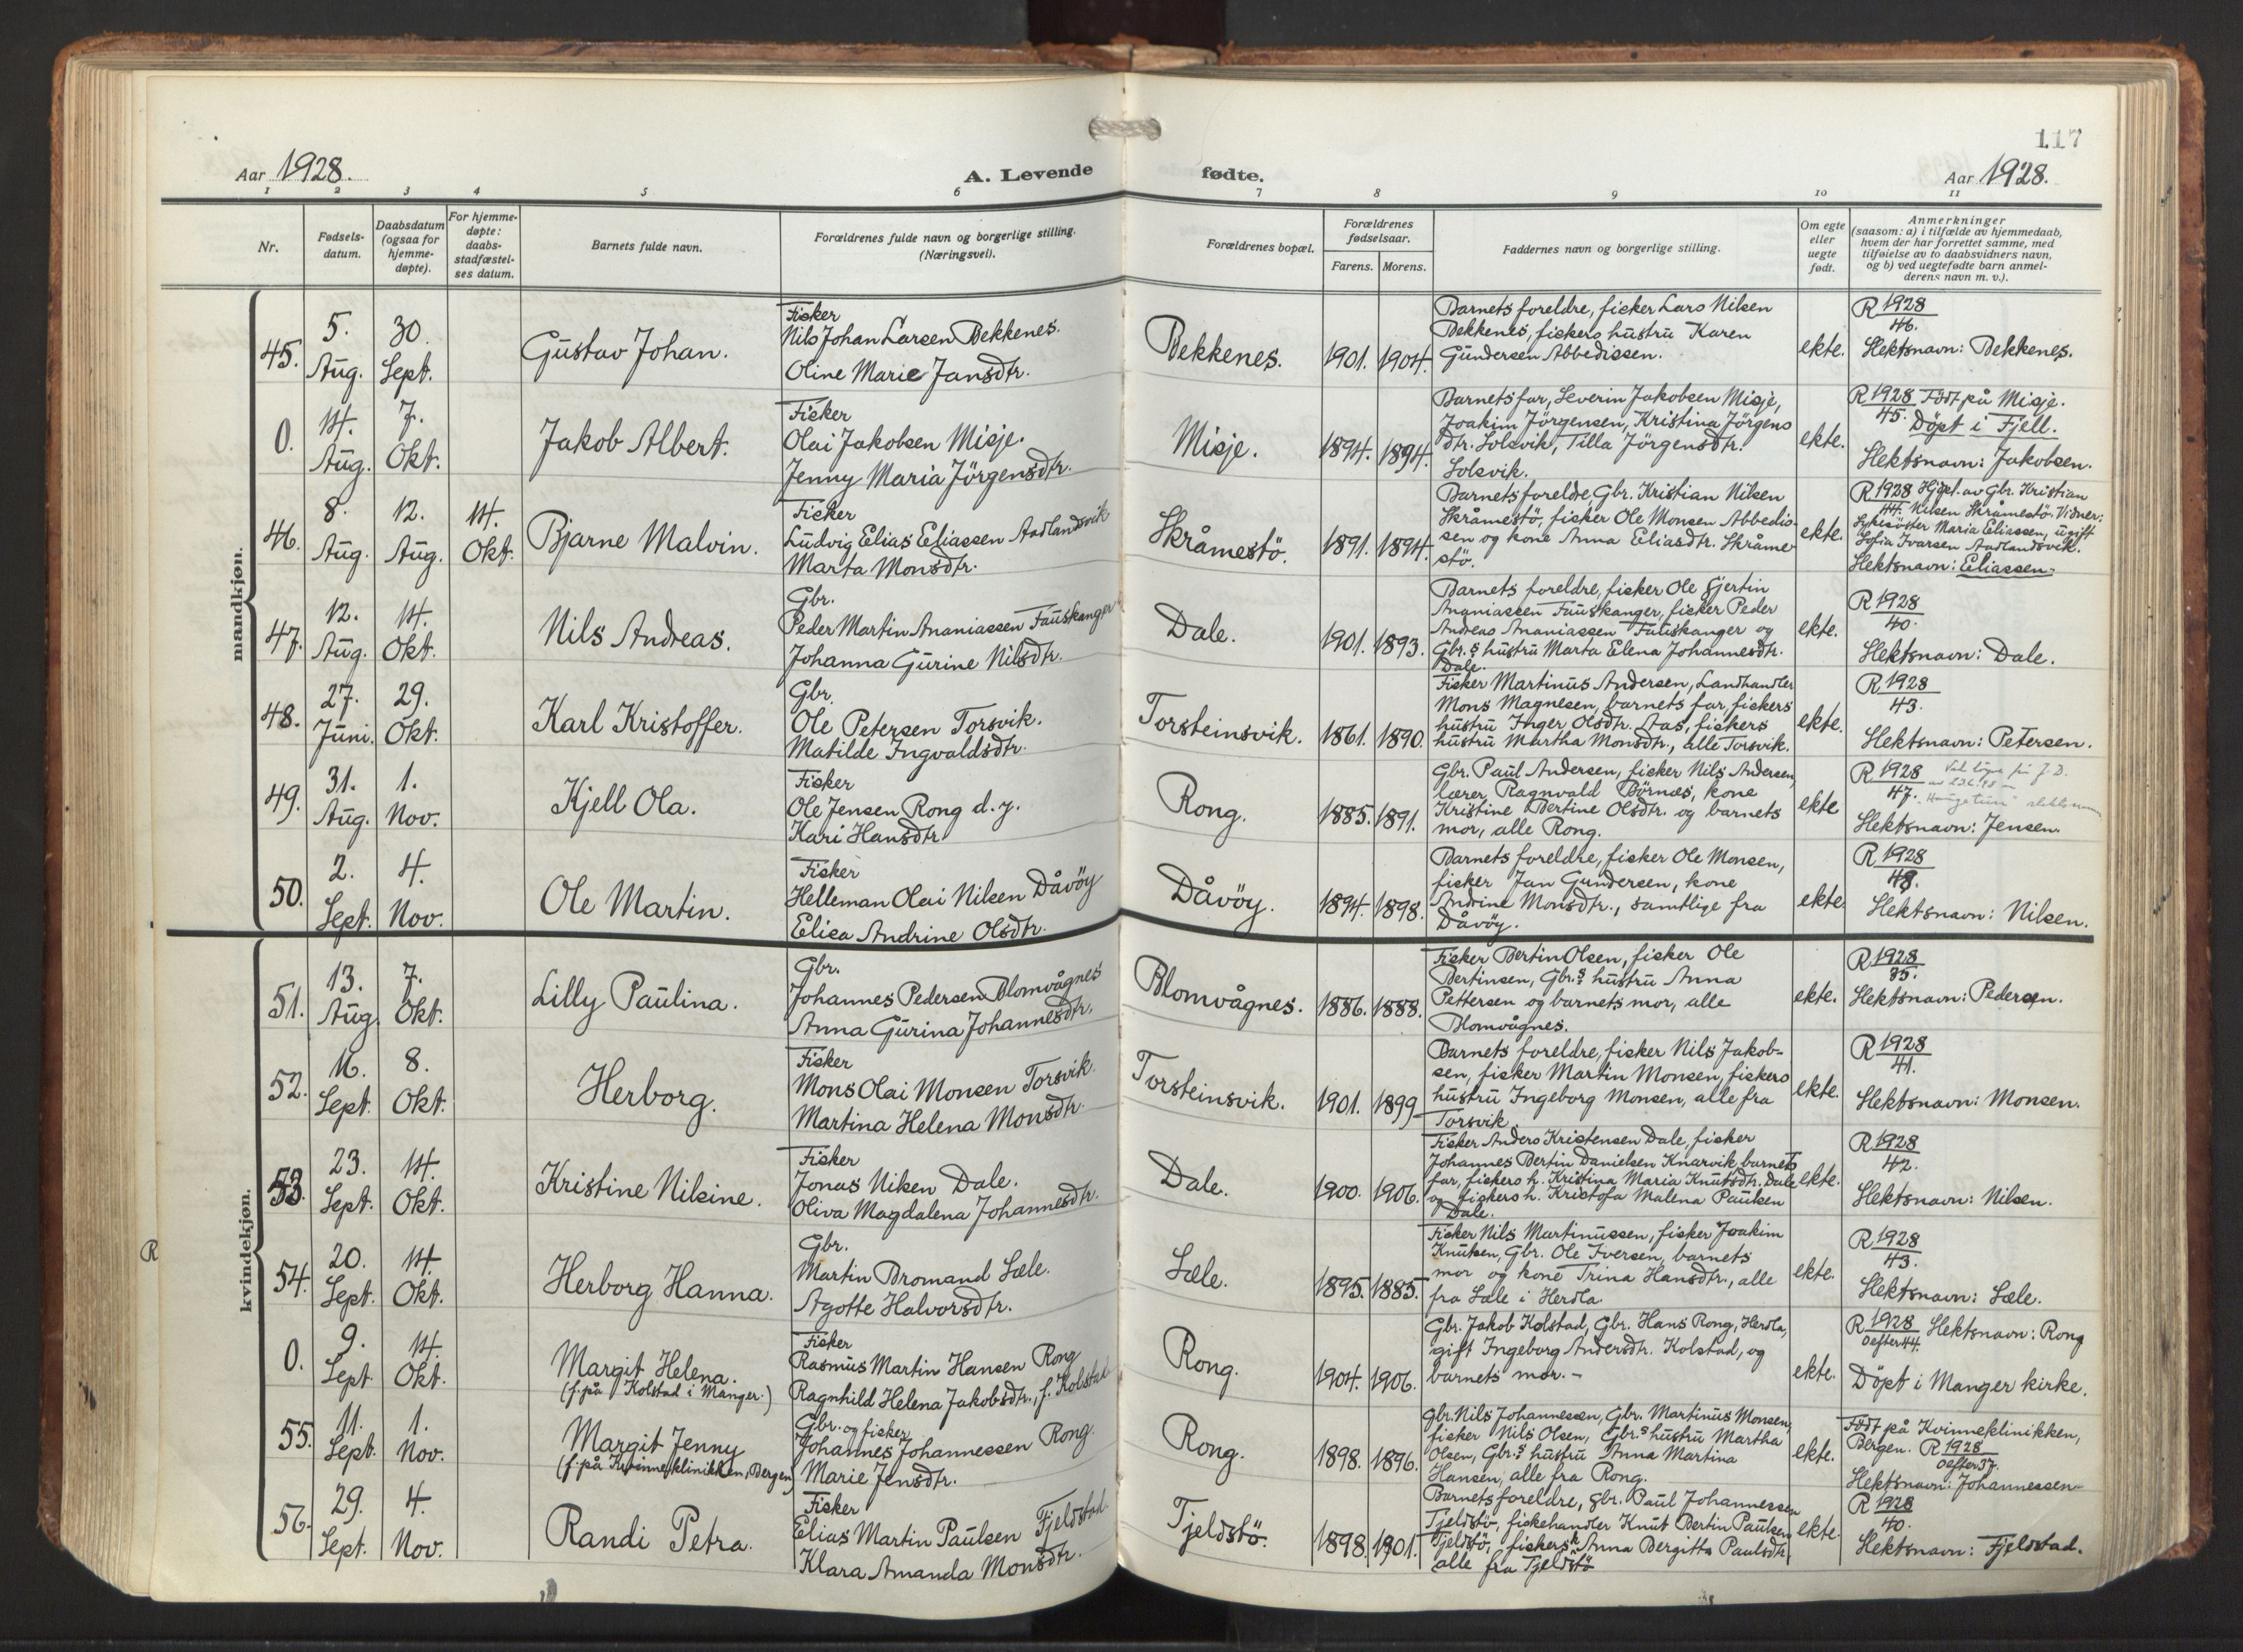 117
Aar 1928.
A. Levende
fødte.
Aar 1928.
1 2 3 4 5 6 7 8 9 10 11
Nr.
Fødsels-
datum.
Daabsdatum
(ogsaa for
hjemme-
døpte).
For hjemme-
døpte:
daabs-
stadfæstel-
ses datum.
Barnets fulde navn.
Forældrenes fulde navn og borgerlige stilling.
(Næringsvei).
Forældrenes bopæl.
Forældrenes
fødselsaar.
Farens. Morens.
Faddernes navn og borgerlige stilling.
Om egte
eller
uegte
født.
Anmerkninger
(saasom: a) i tilfælde av hjemmedaab,
hvem der har forrettet samme, med
tilføielse av to daabsvidners navn,
og b) ved uegtefødte barn anmel-
derens navn m. v.).
mandkjøn.
45.
5.
Aug.
30.
Sept.
Gustav Johan.
Fisker
Nils Johan Larsen Bekkenes.
Oline Marie Jansdtr.
Bekkenes.
1901. 1904.
Barnets foreldre, fisker Lars Nilsen
Bekkenes, fiskers hustru Karen
Gundersen Abbedissen.
ekte.
R 1928
46.
Slektsnavn: Bekkenes.
0.
14.
Aug.
7.
Okt.
Jakob Albert.
Fisker
Olai Jakobsen Misje.
Jenny Maria Jörgensdtr.
Misje.
1894. 1894.
Barnets far, Severin Jakobsen Misje,
Joakim Jörgensen, Kristina Jörgens
dtr. Solsvik, Tilla Jörgensdtr.
Solsvik.
ekte.
R 1928 Födt på Misje.
45. Döpt i Fjell.
Slektsnavn: Jakobsen.
46.
8.
Aug.
12.
Aug.
14.
Okt.
Bjarne Malvin.
Fisker
Ludvig Elias Eliassen Aadlandsvik
Marta Monsdtr.
Skråmestö.
1891. 1894.
Barnets foreldre, Gbr. Kristian Nilsen
Skråmestö, fisker Ole Monsen Abbedis-
sen og kone Anna Eliasdtr. Skråme
stö.
ekte.
R 1928 Hjdpt. av Gbr. Kristian
44. Nilsen Skråmestö. Vidner:
Sykesöster Maria Eliassen, ugift
Sofia Ivarsen Aadlandsvik.
Slektsnavn: Eliassen.
47.
12.
Aug.
14.
Okt.
Nils Andreas.
Gbr.
Peder Martin Ananiassen Fauskanger
Johanna Gurine Nilsdtr.
Dale.
1901. 1893.
Barnets foreldre, fisker Ole Gjertin
Ananiassen Fauskanger, fisker Peder
Andreas Ananiassen Fauskanger og
Gbr.s hustru Marta Elena Johannesdtr.
Dale.
ekte.
R 1928
40.
Slektsnavn: Dale.
48.
27.
Juni.
29.
Okt.
Karl Kristoffer.
Gbr.
Ole Petersen Torsvik.
Matilde Ingvaldsdtr.
Torsteinsvik.
1861. 1890.
Fisker Martinus Andersen, Landhandler
Mons Magnesen, barnets far, fiskers
hustru Inger Olsdtr. Aas, fiskers
hustru Martha Monsdtr., alle Torsvik.
ekte.
R 1928
43.
Slektsnavn: Petersen.
49.
31.
Aug.
1.
Nov.
Kjell Ola.
Fisker
Ole Jensen Rong d.y.
Kari Hansdtr.
Rong.
1885. 1891.
Gbr. Paul Andersen, fisker Nils Andersen,
lærer Ragnvald Börnes, kone
Kristine Bertine Olsdtr. og barnets
mor, alle Rong.
ekte
R 1928
47.
Slektsnavn: Jensen.
50.
2.
Sept.
4.
Nov.
Ole Martin.
Fisker
Helleman Olai Nilsen Dåvöy
Elisa Andrine Olsdtr.
Dåvöy.
1894. 1898.
Barnets foreldre, fisker Ole Monsen,
fisker Jan Gundersen, kone
Andrine Monsdtr., samtlige fra
Dåvöy.
ekte.
R 1928
48.
Slektsnavn: Nilsen.
kvindekjøn.
51.
13.
Aug.
7.
Okt.
Lilly Paulina.
Gbr.
Johannes Pedersen Blomvågnes
Anna Gurina Johannesdtr.
Blomvågnes.
1886. 1888.
Fisker Bertin Olsen, fisker Ole
Bertinsen, Gbr.s hustru Anna
Pettersen og barnets mor, alle
Blomvågnes.
ekte.
R 1928
35.
Slektsnavn: Pedersen.
52.
16.
Sept.
8.
Okt.
Herborg.
Fisker
Mons Olai Monsen Torsvik.
Martina Helena Monsdtr.
Torsteinsvik.
1901. 1899
Barnets foreldre, fisker Nils Jakob-
sen, fisker Martin Monsen, fiskers
hustru Ingeborg Monsen, alle fra
Torsvik.
ekte.
R 1928
41.
Slektsnavn: Monsen.
53.
23.
Sept.
14.
Okt.
Kristine Nilsine.
Fisker
Jonas Nilsen Dale.
Oliva Magdalena Johannesdtr.
Dale.
1900. 1906.
Fisker Anders Kristensen Dale, fisker
Johannes Bertin Danielsen Knarvik, barnets
far, fiskers h. Kristina Maria Knutsdtr. Dale
og fiskers h. Kristofa Malena Paulsen
Dale.
ekte.
R 1928
42.
Slektsnavn: Nilsen.
R
54.
20.
Sept.
14.
Okt.
Herborg Hanna.
Gbr.
Martin Bromand Sæle.
Agotte Halvorsdtr.
Sæle.
1895. 1885.
Fisker Nils Martinussen, fisker Joakim
Knutsen, Gbr. Ole Iversen, barnets
mor og kone Trina Hansdtr., alle
fra Sæle i Herdla.
ekte.
R 1928
43.
Slektsnavn: Sæle.
0.
9.
Sept.
14.
Okt.
Margit Helena.
(f. på Kolstad i Manger.)
Fisker
Rasmus Martin Hansen Rong
Ragnhild Helena Jakobsdtr., f. Kolstad
Rong.
1904. 1906.
Gbr. Jakob Kolstad, Gbr. Hans Rong, Herdla,
gift Ingeborg Andersdtr. Kolstad, og
barnets mor. -
ekte.
R 1928 Slektsnavn: Rong
0 efter 44.
Döpt i Manger kirke.
55.
11.
Sept.
1.
Nov.
Margit Jenny
(f. på Kvinneklinikken, Bergen)
Gbr. og fisker
Johannes Johannessen Rong.
Marie Jensdtr.
Rong.
1898. 1896.
Gbr. Nils Johannessen, Gbr. Martinus Monsen,
fisker Nils Olsen, Gbr.s hustru Martha
Olsen, Gbr.s hustru Anna Martina
Hansen, alle fra Rong.
ekte.
Födt på Kvinneklinikken,
Bergen. R 1928
0 efter 37.
Slektsnavn: Johannessen-
56.
29.
Sept.
4.
Nov.
Randi Petra.
Fisker
Elias Martin Paulsen Fjeldstad
Klara Amanda Monsdtr.
Tjeldstö.
1898. 1901.
Barnets foreldre, gbr. Paul Johannessen
Tjeldstö, fiskehandler Knut Bertin Paulsen
Tjeldstö, fiskers k. Anna Bergitta Paulsdtr.
alle fra Tjeldstö
ekte.
R 1928
40.
Slektsnavn: Fjeldstad.